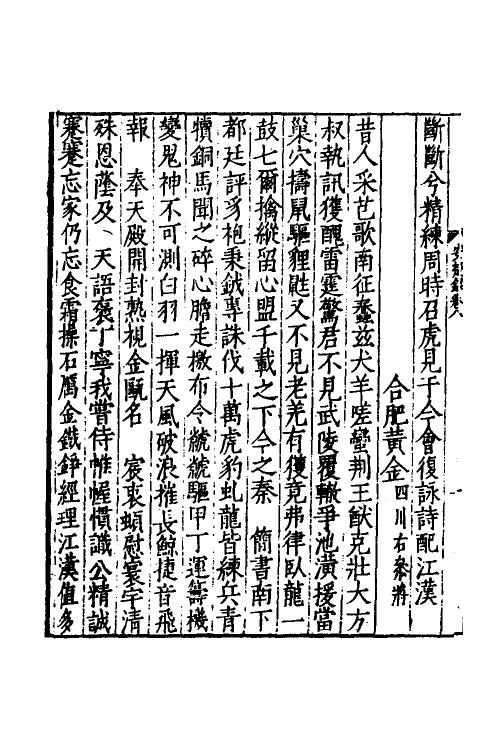 斷斷兮精練周時召虎見于今會復詠詩配江漢
合肥黃金四川右參將
昔人采芑歌南征蠢茲犬羊嗟蠻荆王猷克壯大方
叔執訊獲醜雷霆驚君不見武陵覆轍爭池潢援當
巢穴擣鼠驅狸鼪又不見老羌有獲竟弗律臥龍一
鼓七爾擒縱留心盟千載之下今之秦　簡書南下
都廷評豸袍秉鉞專誅伐十萬虎豹虬龍皆練兵青
犢銅馬聞之碎心膽走檄布令虩虩驅甲丁運籌機
變鬼神不可測白羽一揮天風破浪摧長鯨捷音飛
報　奉天殿開封熟視金甌名　宸衷頔慰寰宇清
殊恩蔭及　天語褒丁寧我嘗侍帷幄慣識公精誠
蹇蹇忘家仍忘食霜操石厲金鐵錚經理江漢值多